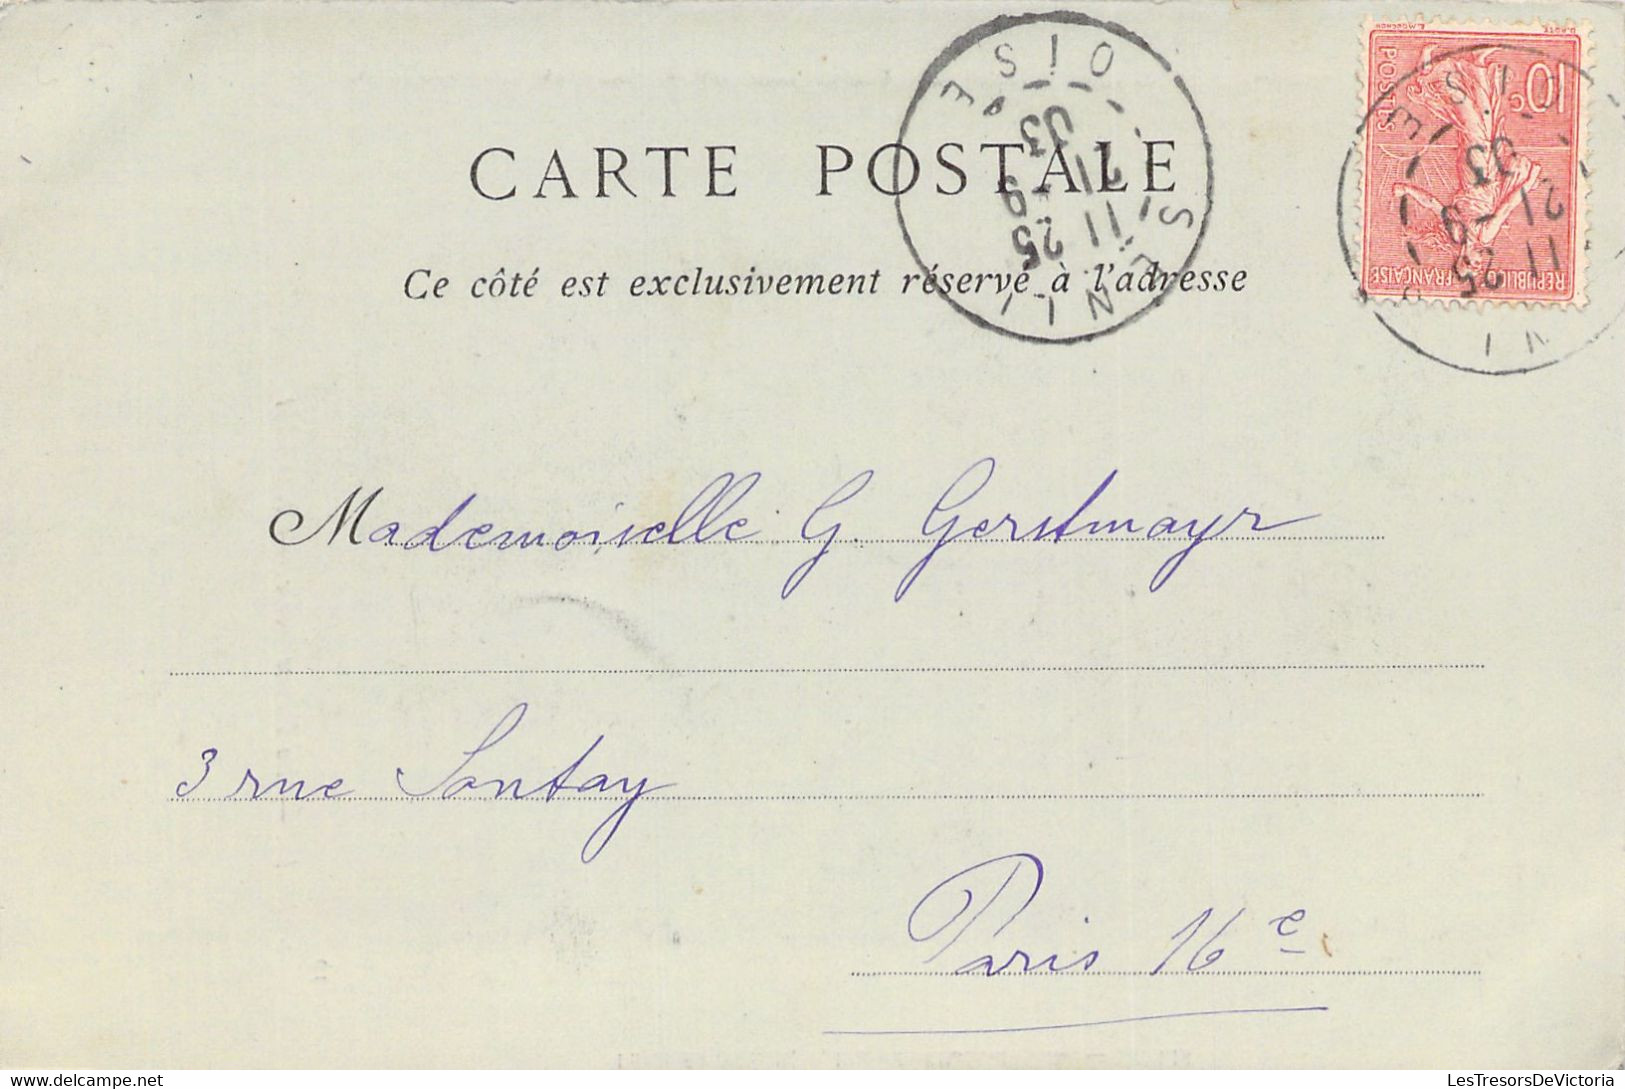 CARTE POSTALE
Ce côté est exclusivement réservé à l'adresse
SENLIS
OISE
11 25
21 -9
03
10c
POSTES
REPUBLIQUE FRANÇAISE
Mademoiselle G. Gerstmayr
3 rue Sontay
Paris 16e
LesTresorsDeVictoria